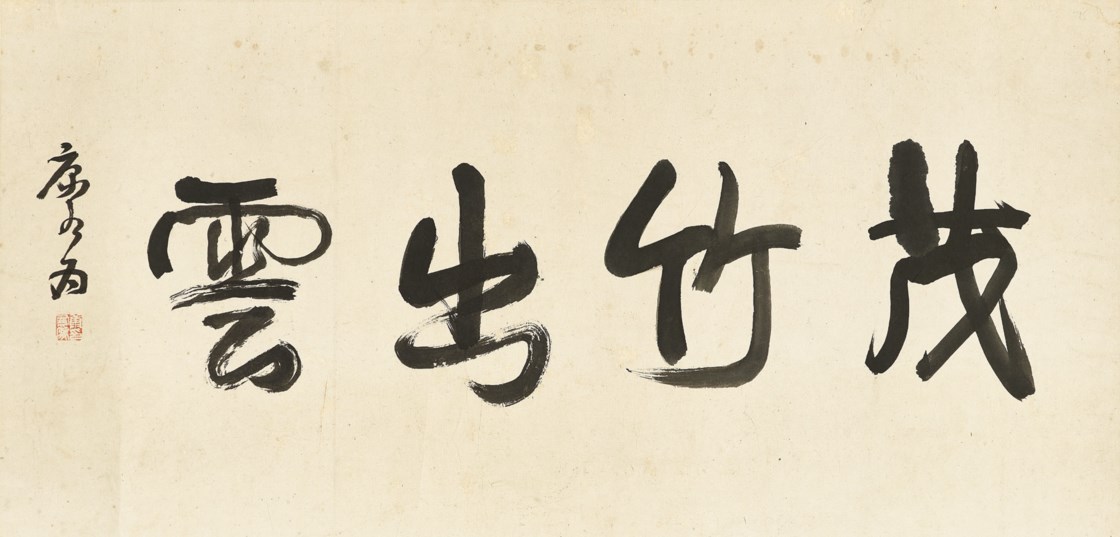 茂竹出雲
康有為